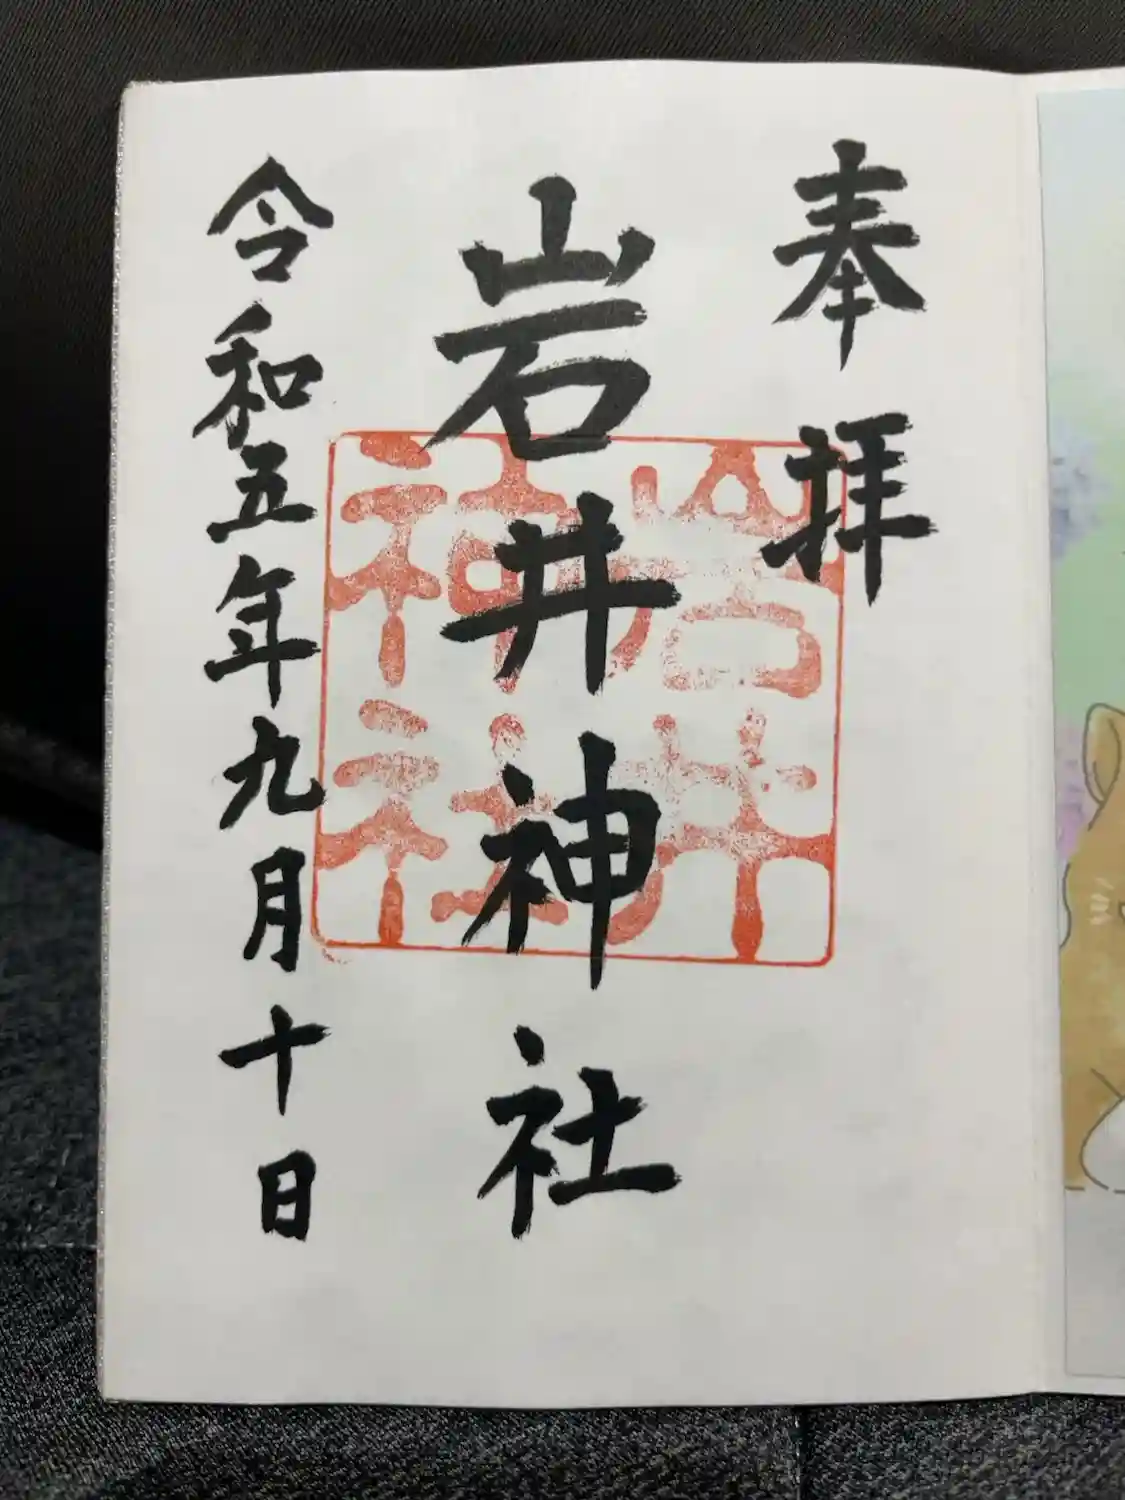 奉拝
岩井神社
岩井
神社
令和五年九月十日